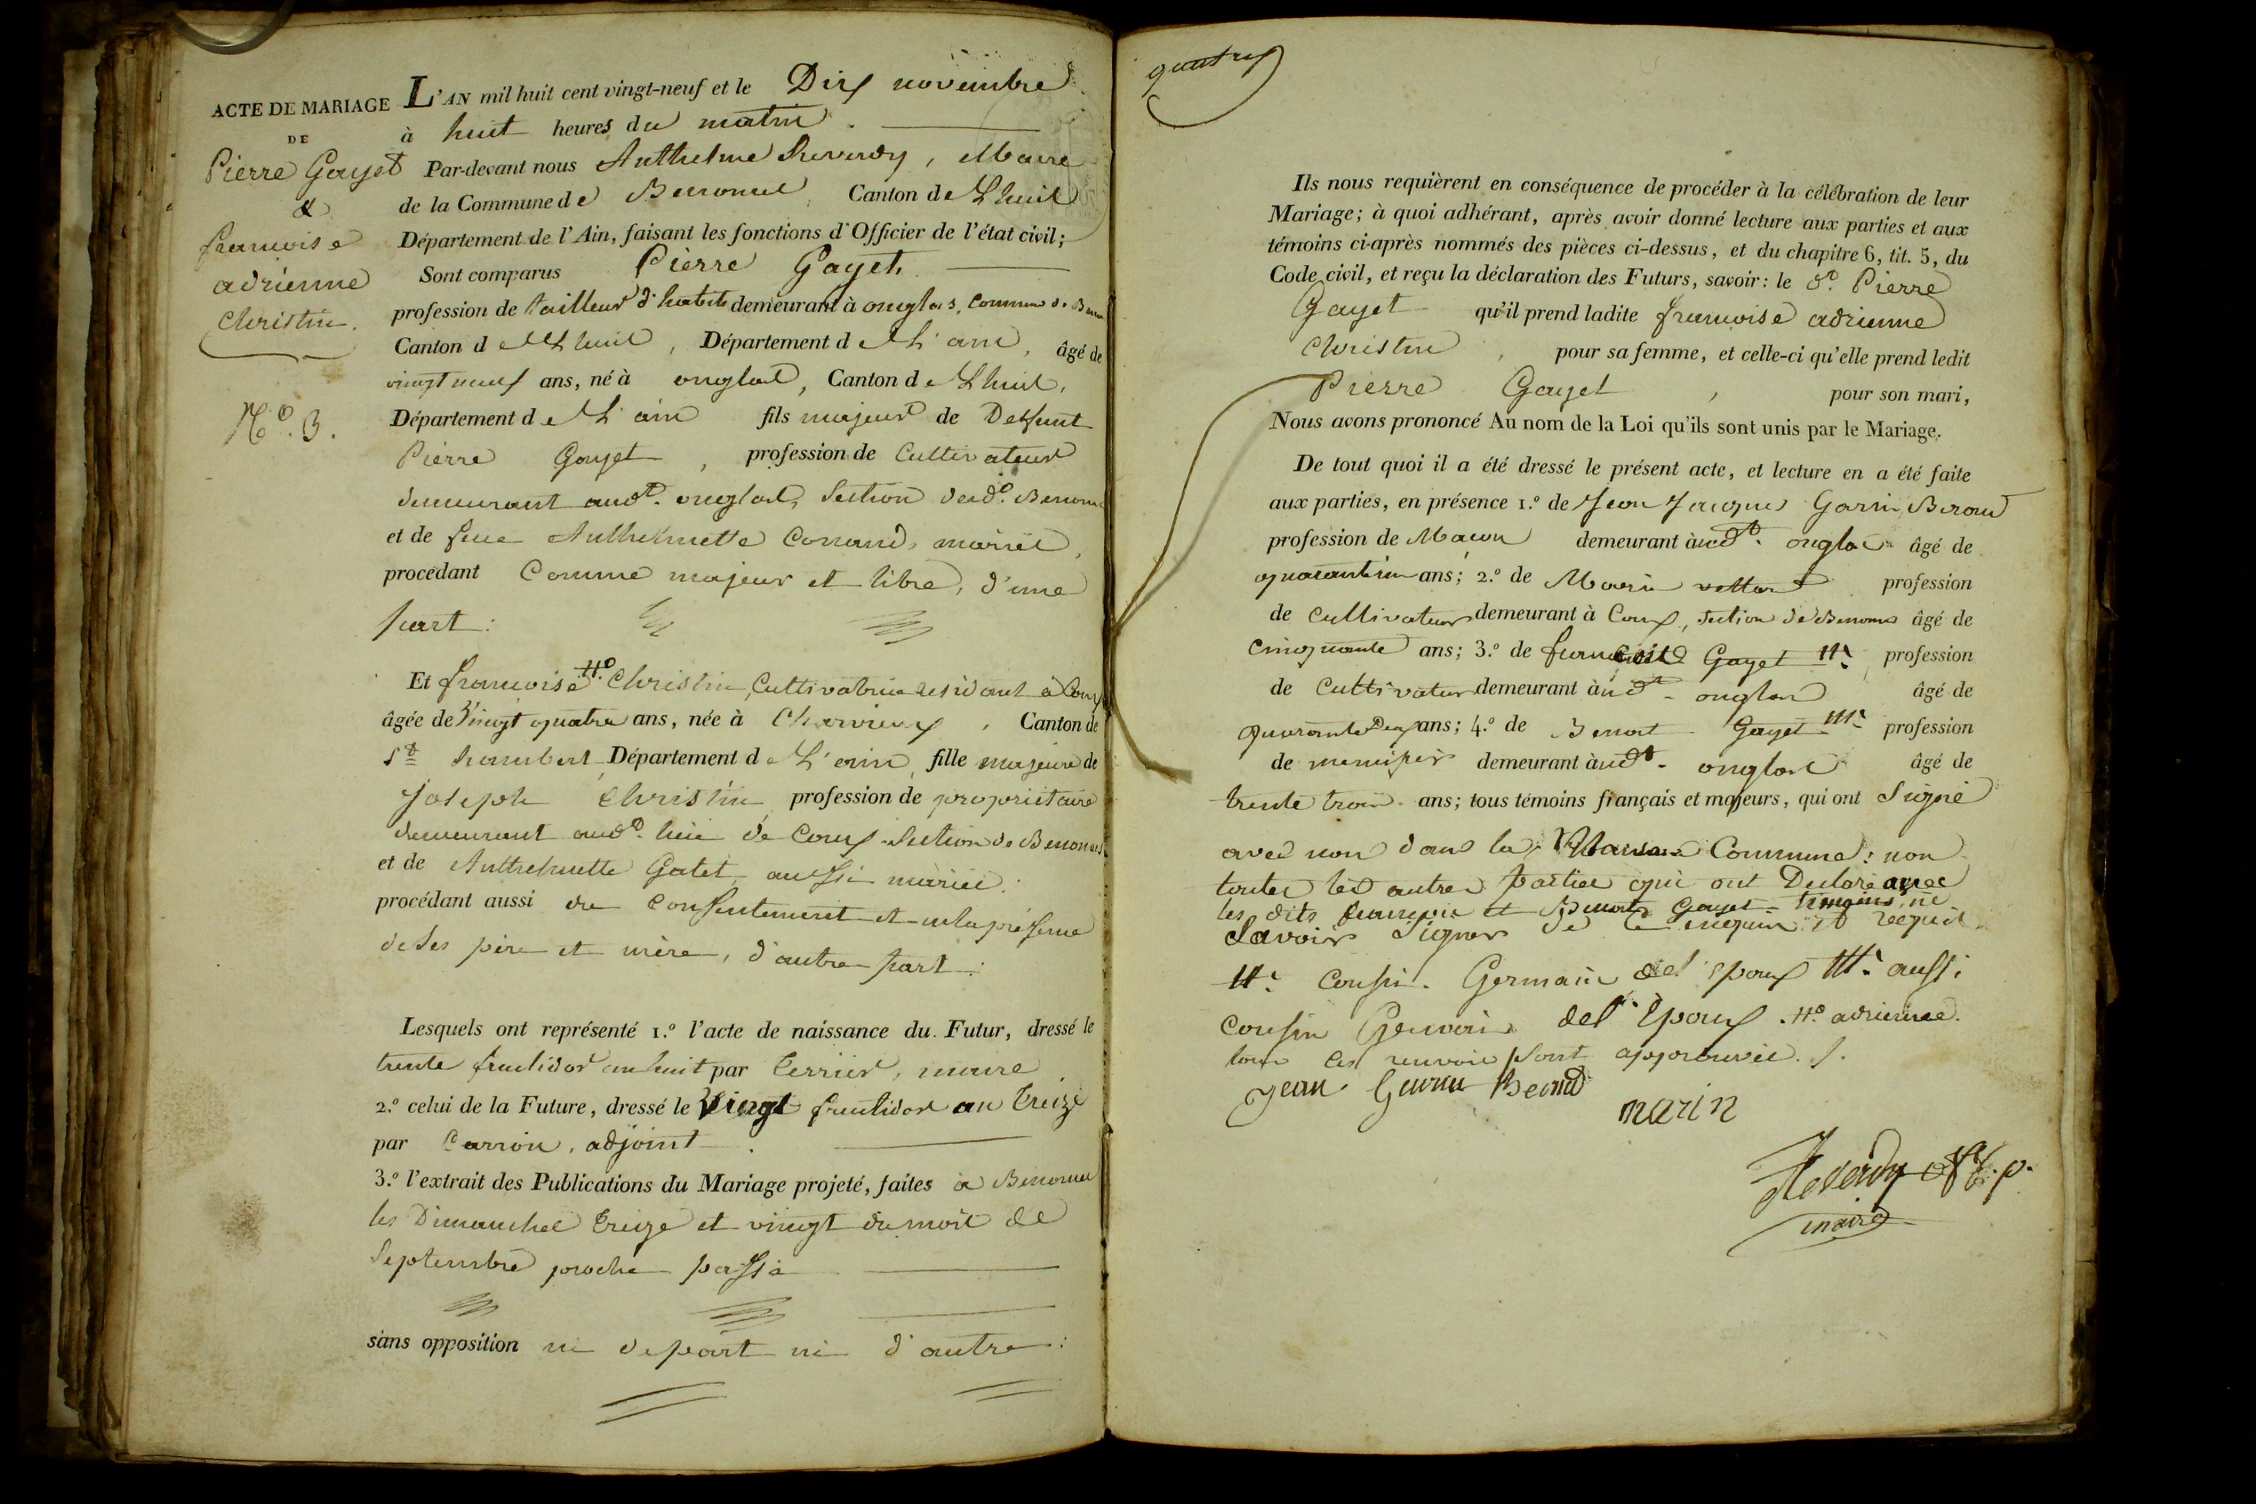 ACTE DE MARIAGE
DE
Pierre Gayet
&
francoise
adrienne
Christin.
N.º 3.
L'AN mil huit cent vingt-neuf et le Dix novembre
à huit heures du matin.
Par-devant nous Anthelme Reverdy, Maire
de la Commune de Benonce, Canton de Lhuis
Département de l'Ain, faisant les fonctions d'Officier de l'état civil;
Sont comparus Pierre Gayet
profession de tailleur d'habits demeurant à onglas, commune de
Canton de Lhuis, Département de L'ain, âgé de
vingt neuf ans, né à onglas, Canton de Lhuis,
Département de L'ain fils majeur de Deffunt
Pierre Gayet, profession de Cultivateur
demeurant aud.t onglas, Section dud.
et de feue Anthelmette Conand, mariés,
procédant Comme majeur et libre, d'une
part:
Et francoise H.º Christin, Cultivatrice résidant à Coux
âgée de Vingt quatre ans, née à Charvieux, Canton de
S.t Rambert, Département de L'ain, fille majeure de
Joseph Christin profession de propriétaire
demeurant aud. lieu de Coux Section de Benonces
et de Anthelmette Gatet aussi mariés:
procédant aussi du Consentement et en la présence
de ses père et mère, d'autre part:
Lesquels ont représenté 1.º l'acte de naissance du Futur, dressé le
trente fructidor an huit par Terrier, maire
2.º celui de la Future, dressé le Vingt fructidor an Treize
par Carron, adjoint.
3.º l'extrait des Publications du Mariage projeté, faites à Benonce
les Dimanches Treize et vingt du mois de
Septembre proche passé
sans opposition ni de part ni d'autre:
Ils nous requièrent en conséquence de procéder à la célébration de leur
Mariage; à quoi adhérant, après avoir donné lecture aux parties et aux
témoins ci-après nommés des pièces ci-dessus, et du chapitre 6, tit. 5, du
Code civil, et reçu la déclaration des Futurs, savoir: le d.t Pierre
Gayet qu'il prend ladite francoise adrienne
Christin, pour sa femme, et celle-ci qu'elle prend ledit
Pierre Gayet, pour son mari,
Nous avons prononcé Au nom de la Loi qu'ils sont unis par le Mariage.
De tout quoi il a été dressé le présent acte, et lecture en a été faite
aux parties, en présence 1.º de Jean Jacques Garin Beroud
profession de Macon demeurant à aud.t onglas âgé de
ans; 2.º de Marin profession
de Cultivateur demeurant à Coux, section de Benonces âgé de
Cinquante ans; 3.º de francois Gayet H. profession
de Cultivateur demeurant à aud.t onglas âgé de
quarante Deux ans; 4.º de Benoit Gayet HI. profession
de menuisier demeurant à aud.t onglas âgé de
trente trois ans; tous témoins français et majeurs, qui ont Signé
avec nous dans la Maison Commune: non
toutes les autres parties qui ont Declaré avec
les dits francois et Benoit Gayet témoins ne
Savoir Signer de ce enquis et requis
H. Cousin Germain de l'epoux HI. aussi
cousin Germain de l'Epoux. H.º adrienne.
tous les renvois sont approuvés.
Jean Garin Beroud
marin
Reverdy
maire